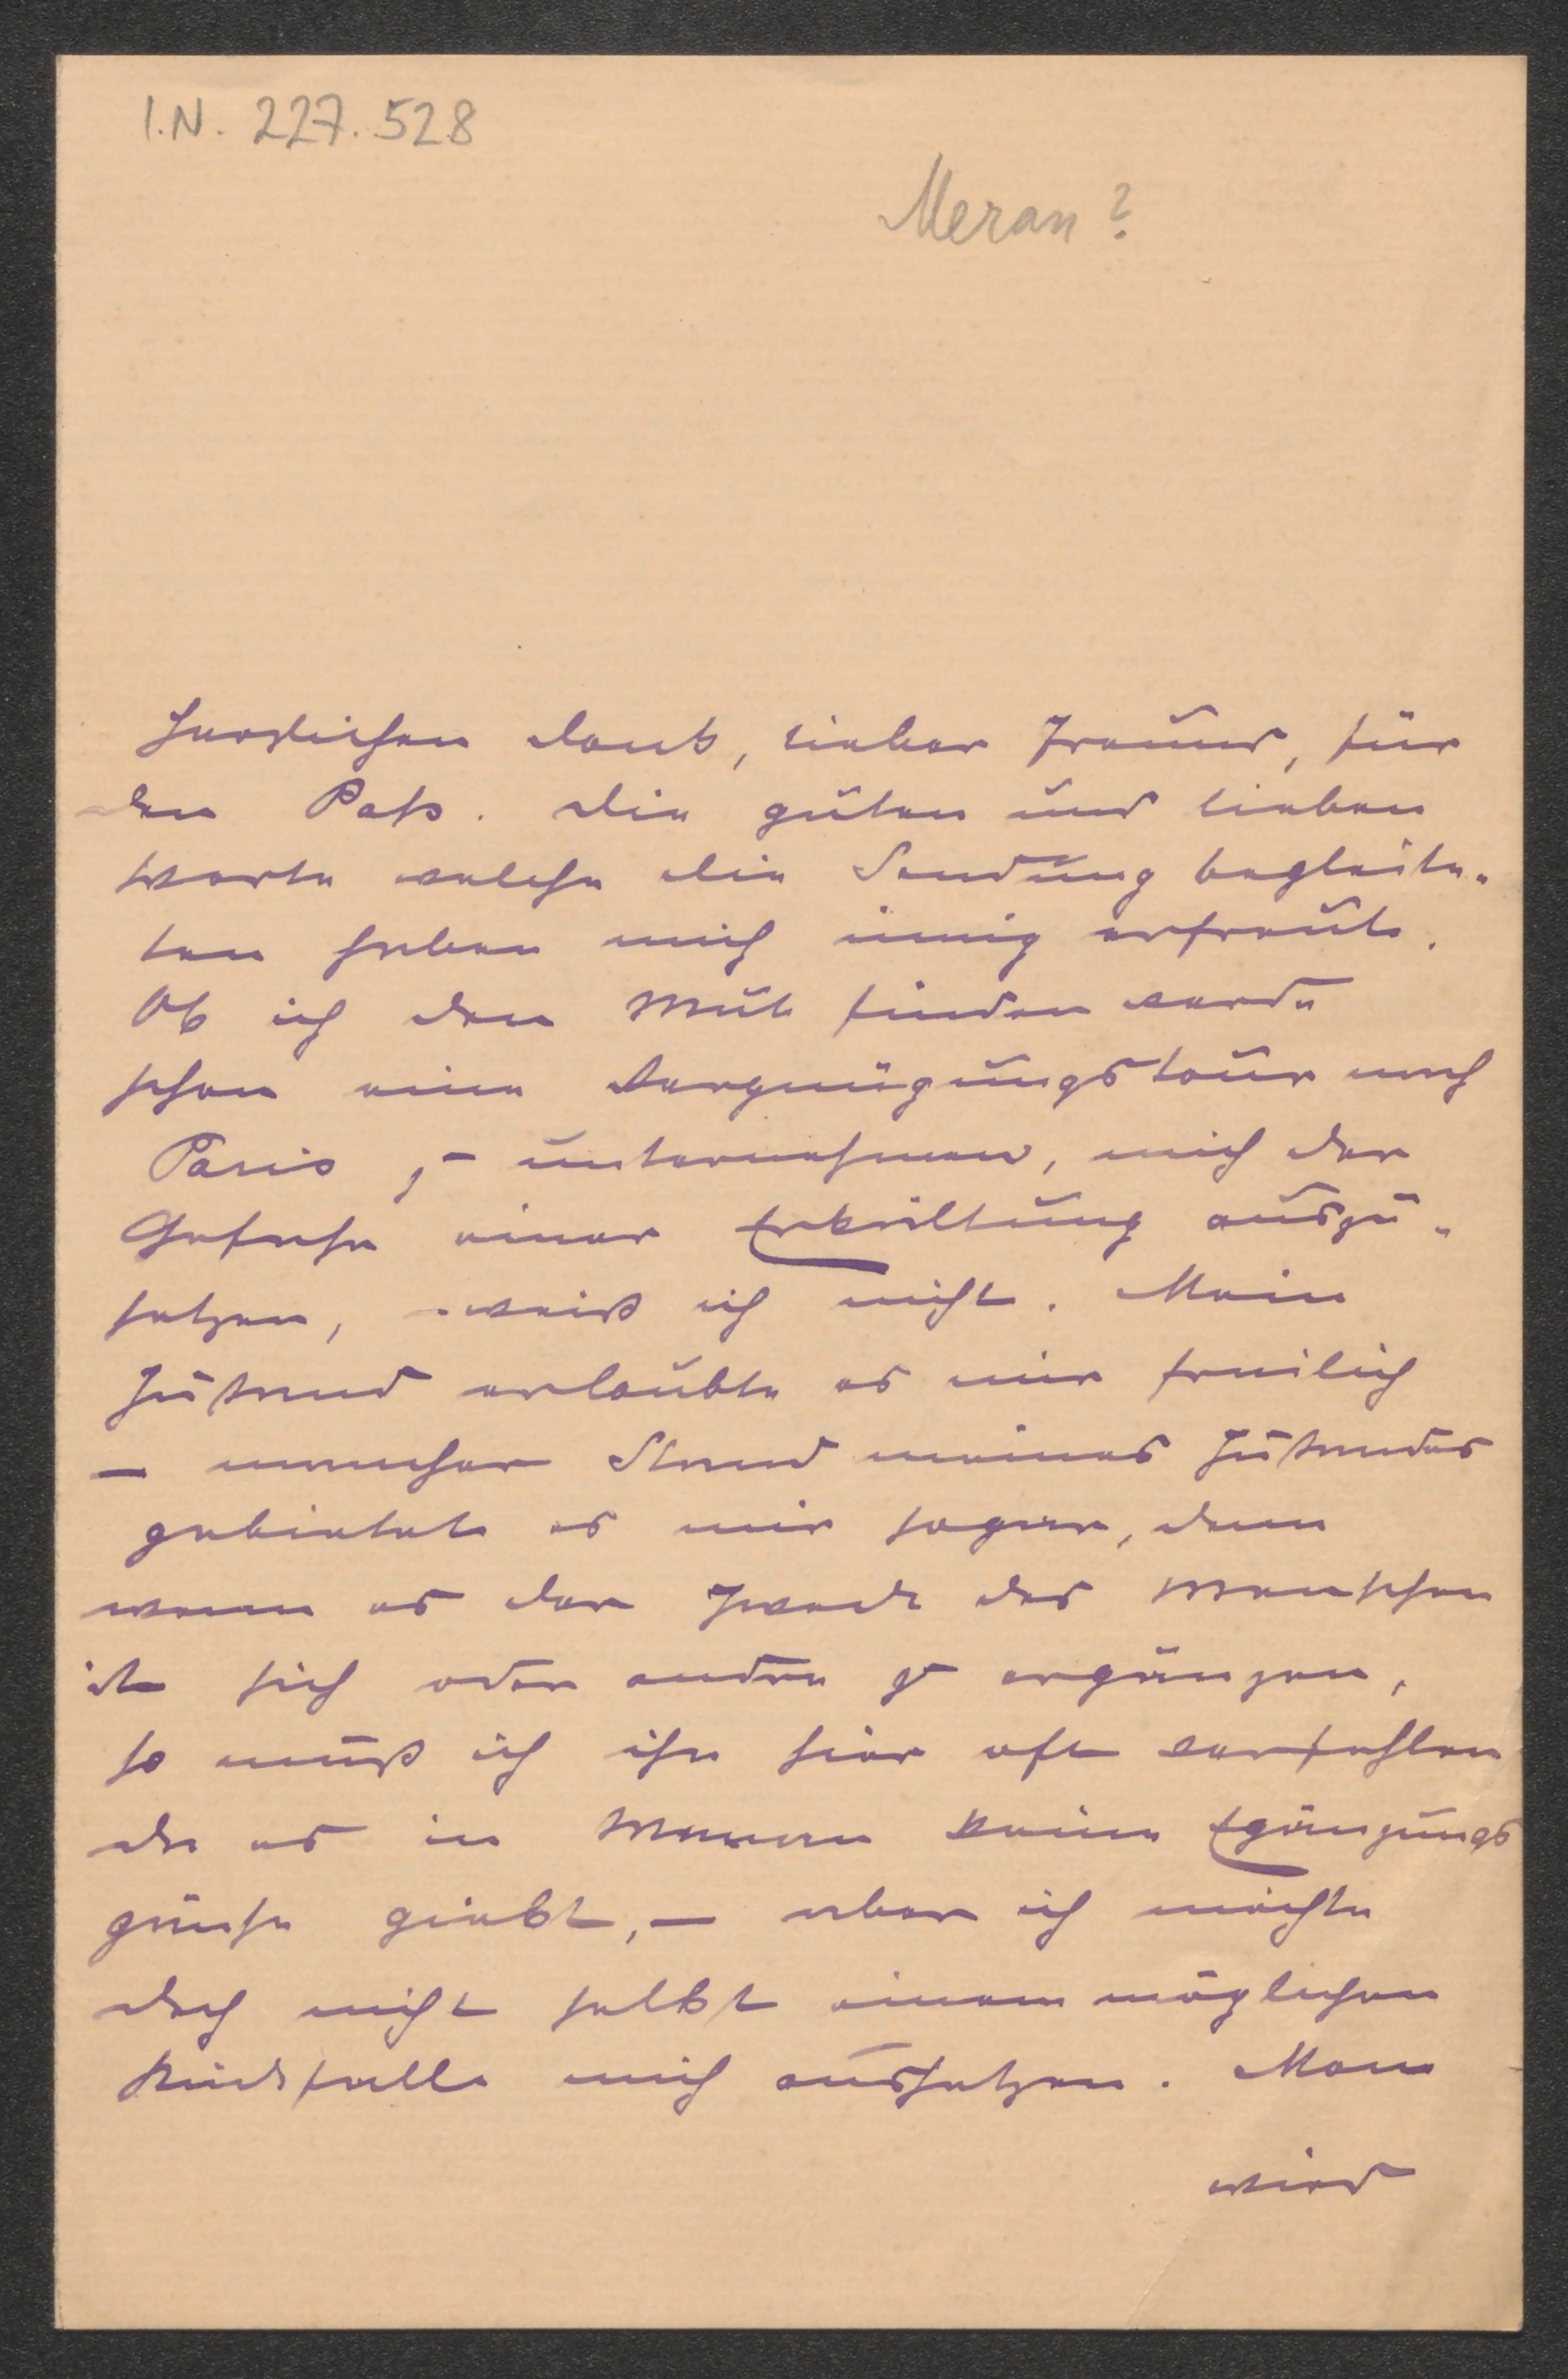 I.N. 227.528
Meran?
Herzlichen Dank, lieber Freund, für
den Paß. Die guten und lieben
Worte welche die Sendung begleite-
ten haben mich innig erfreut.
Ob ich den Mut finden werde
schon eine Vergnügungstour nach
Paris, – unternehmen, mich der
Gefahr einer Erkältung auszu-
setzen, weiß ich nicht. Mein
Zustand erlaubte es mir freilich
– mancher Stand meines Zustandes
gebietet es mir sogar, denn
wenn es der Zweck des Menschen
ist sich oder andre zu ergänzen,
so muß ich ihn hier oft verfehlen
da es in Meran keine Egänzungs
gänse giebt, – aber ich möchte
doch nicht selbst einem möglichen
Rückfalle mich aussetzen. Man
wird